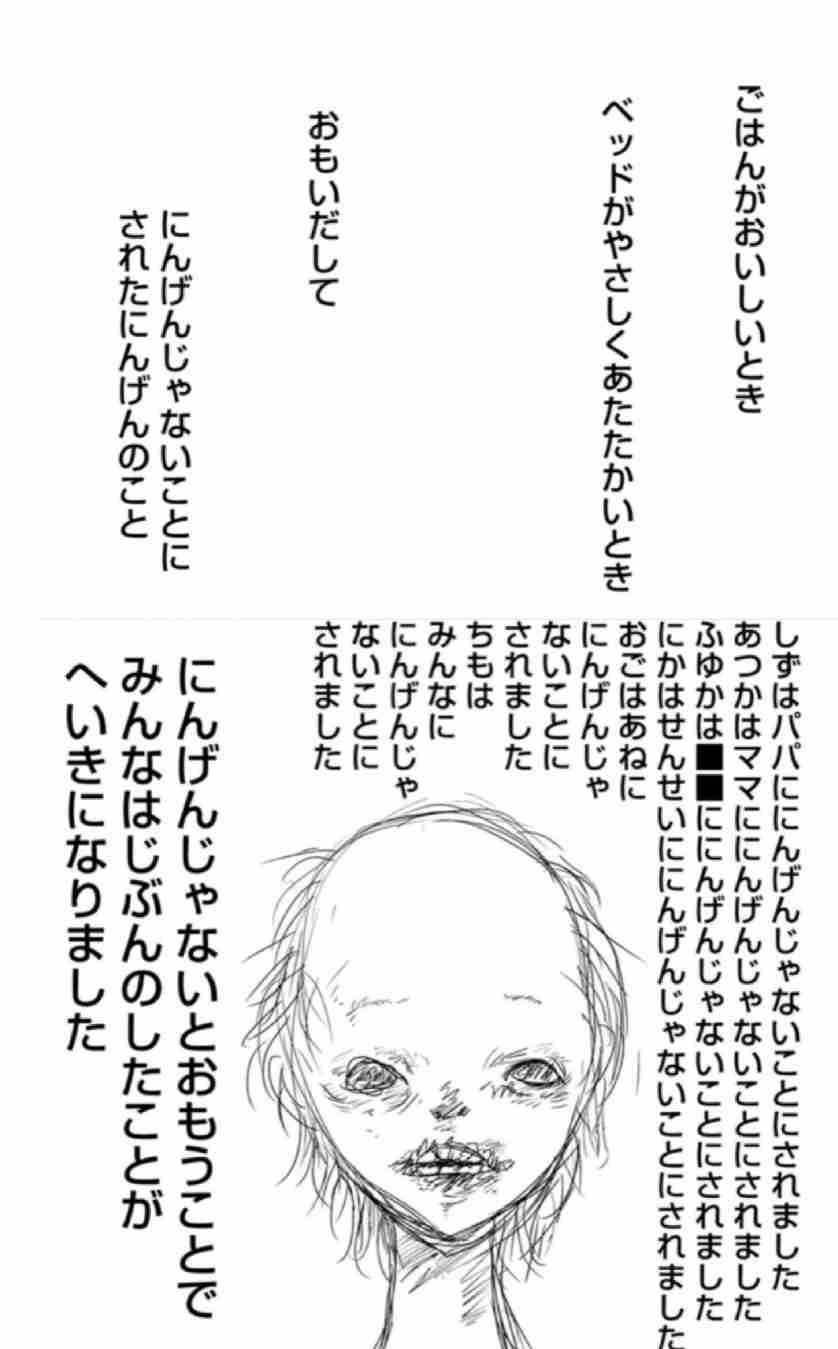 ごはんがおいしいとき
ベッドがやさしくあたたかいとき
おもいだして
にんげんじゃないことに
されたにんげんのこと
しずはパパににんげんじゃないことにされました
あつかはママににんげんじゃないことにされました
ふゆかは■■ににんげんじゃないことにされました
にかはせんせいににんげんじゃないことにされました
おごはあねに
にんげんじゃ
ないことに
されました
ちもは
みんなに
にんげんじゃ
ないことに
されました
にんげんじゃないとおもうことで
みんなはじぶんのしたことが
へいきになりました